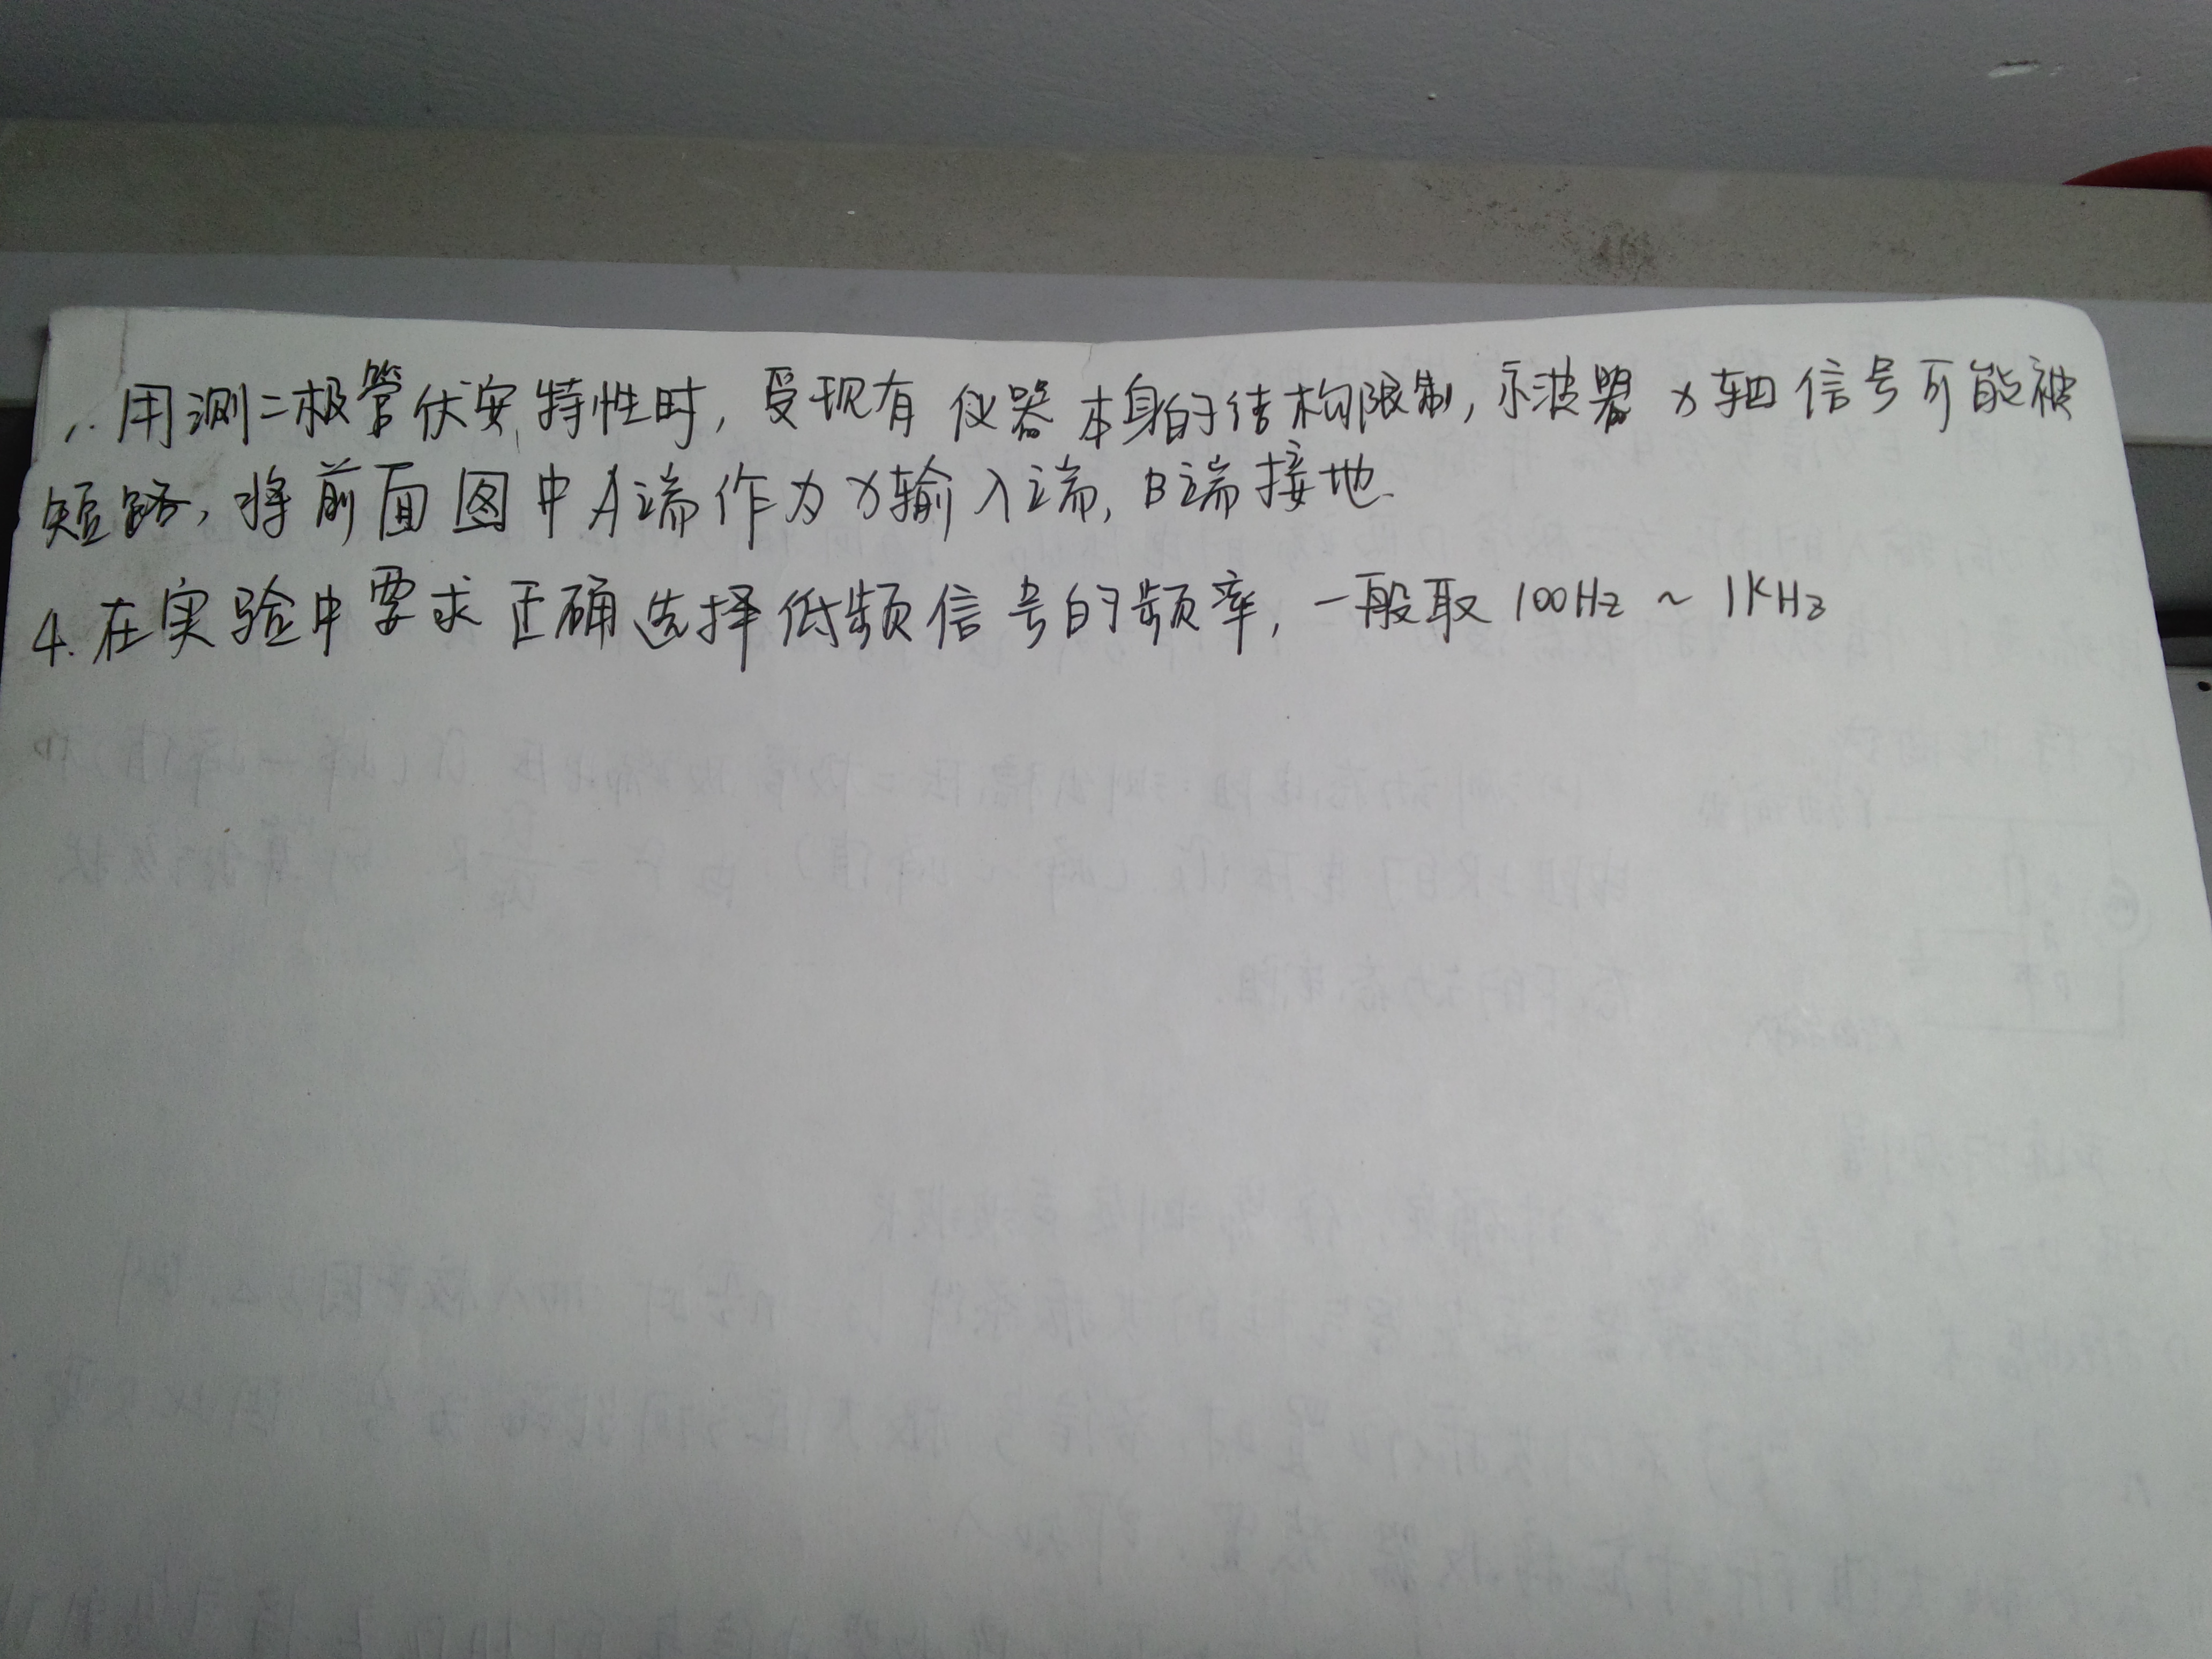 、. 用测二极管伏安特性时, 受现有仪器本身的结构限制, 示波器 X 轴信号可能被
短路, 将前面图中A端作为X输入端, B端接地
4. 在实验中要求正确选择低频信号的频率, 一般取 100Hz ~ 1kHz